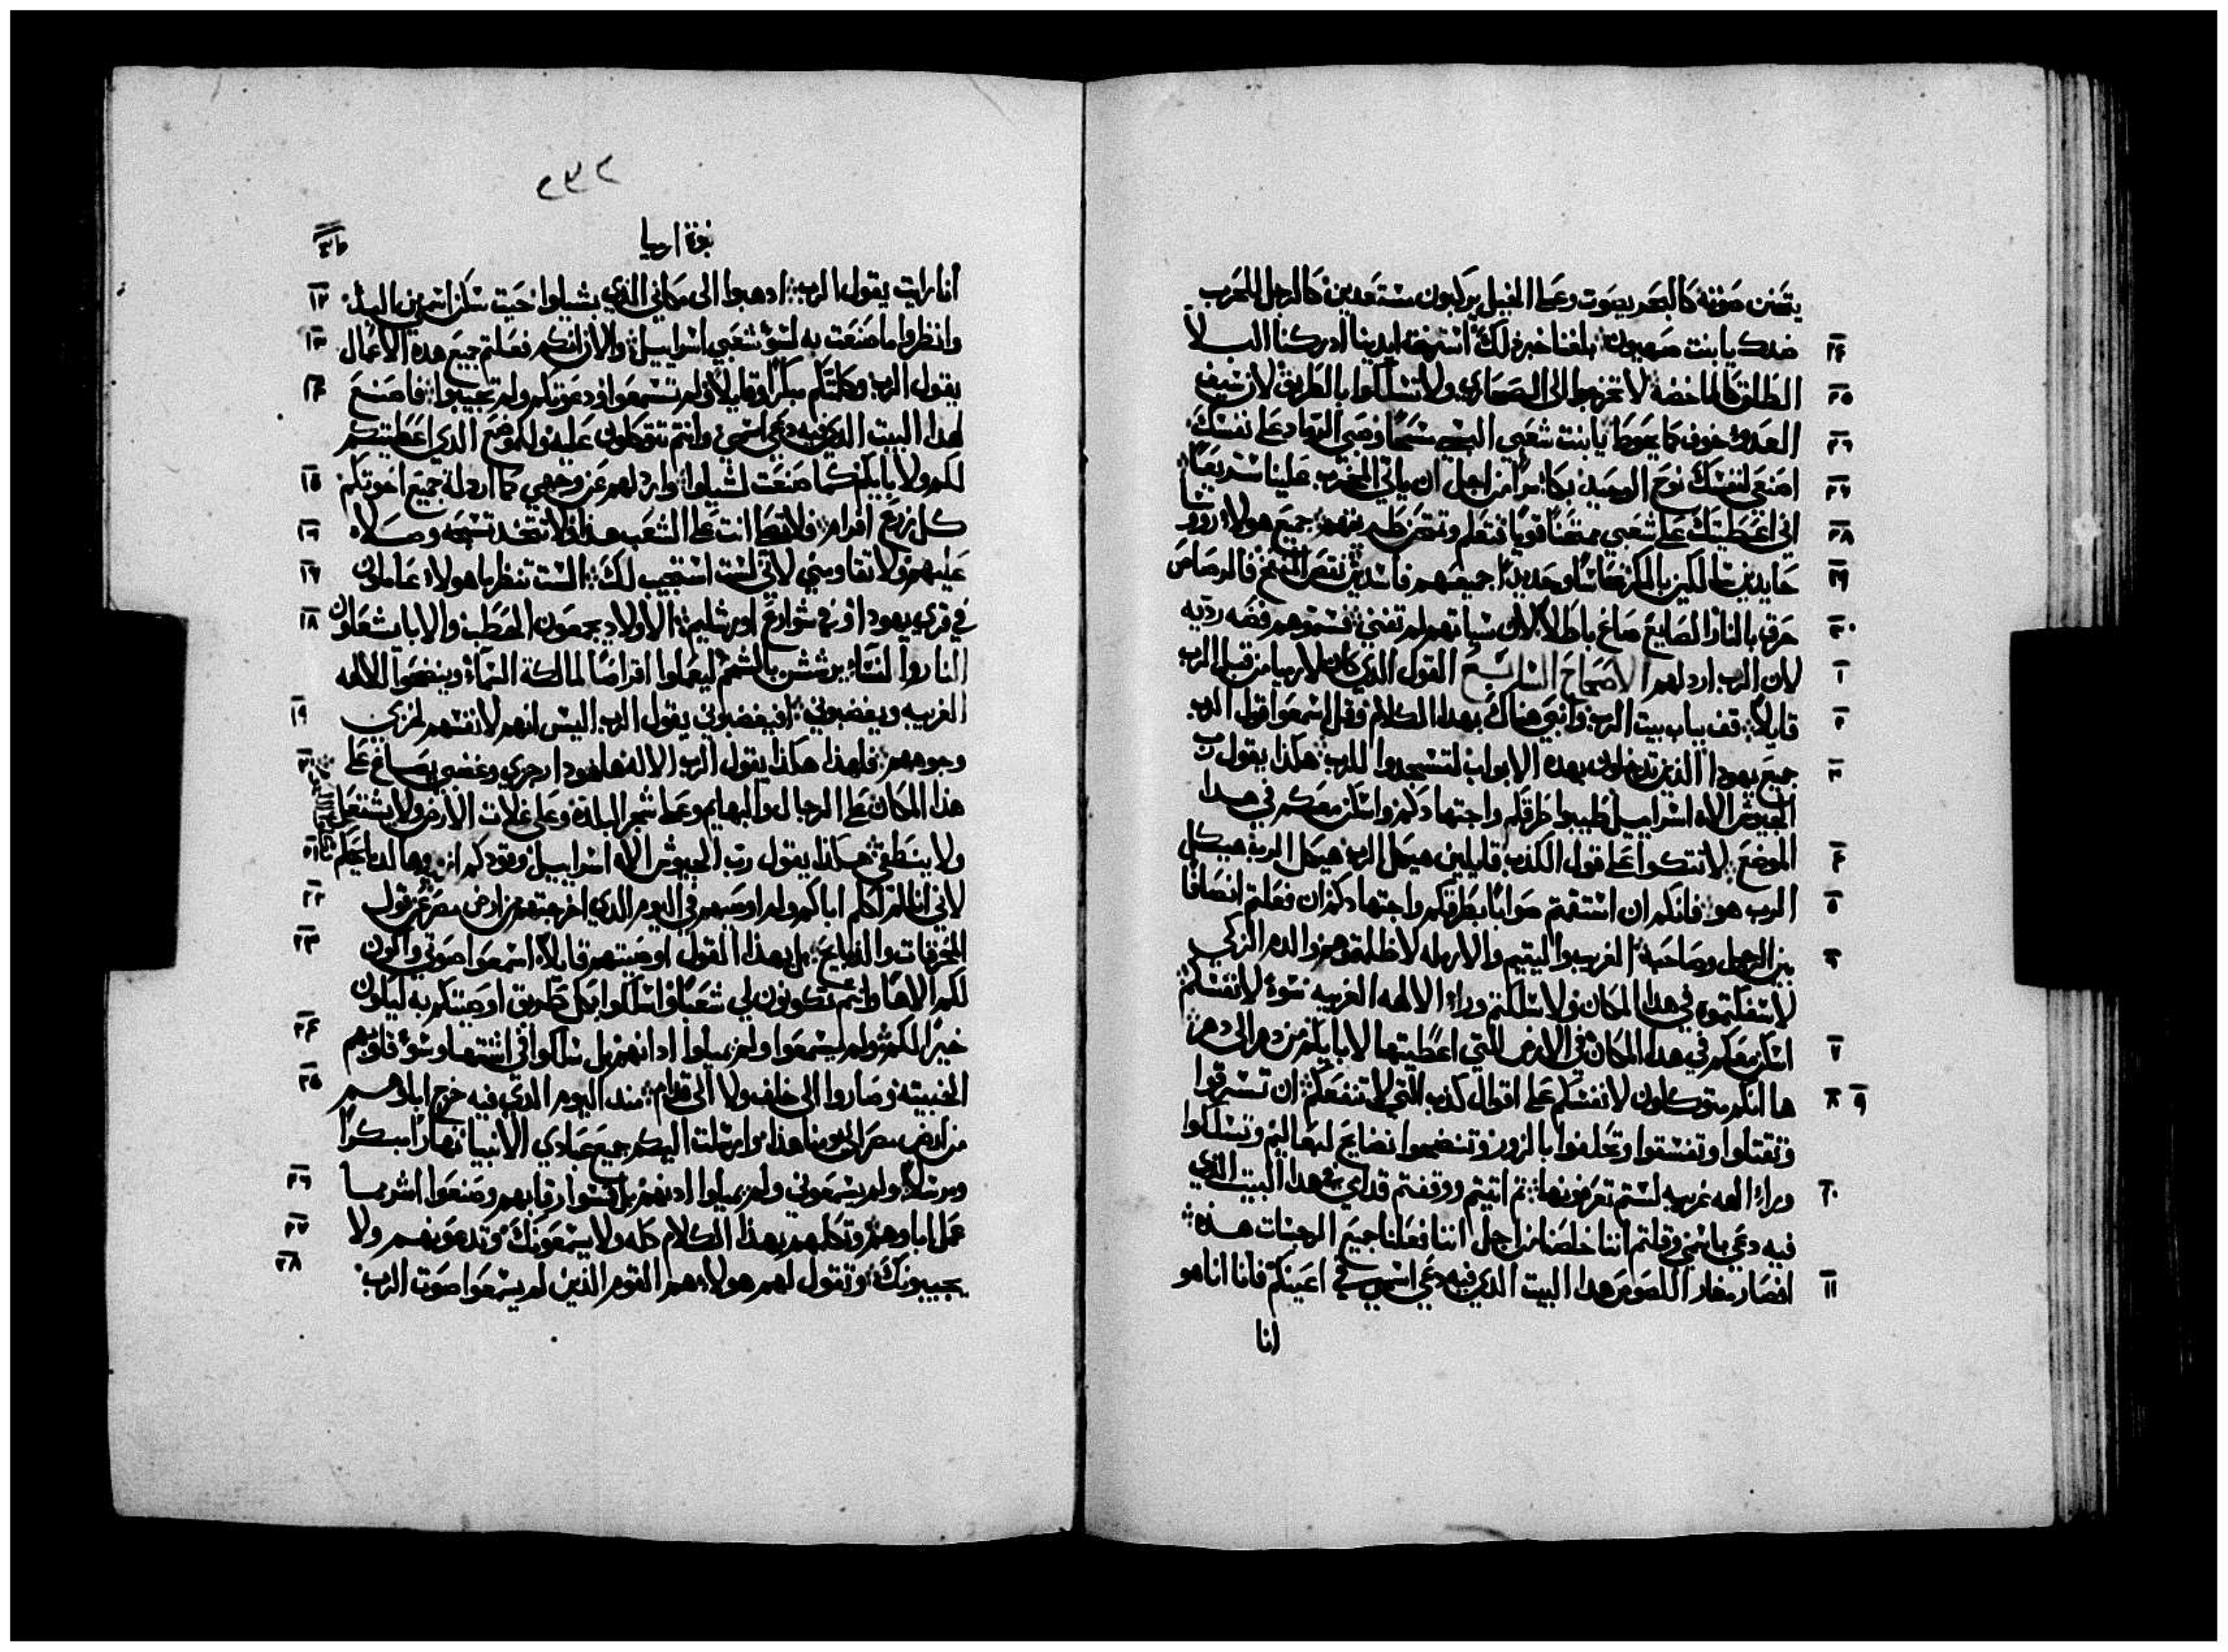 يتمنن صوته كالبحر يصوت وعلى الخيل يركبون مستعدين كالرجل للحرب
٢٤ ضدك يابنت صهيون بلغنا خبره لك استرخت ايدينا ادركنا البلا
٢٥ الطلق كالماخضه لا تخرجوا الى الصحاري ولا تسلكوا بالطريق لان سيف
٢٦ العدو خوف كما يحوط يابنت شعبي البسي مسحا وضعي الرماد على نفسك
٢٦ اصنعي لنفسك نوح الوحيد بكا مرا من اجل ان ياتي المخرب علينا سريعا
٢٨ اني اعطيتك على شعبي ممتحنا قويا فتعلم وتمتحن طريقهم جميع هولاء روسا
٢٩ حايدين سالكين بالمكر نحاسا وحديدا جميعهم فاسدين نقص المنفخ فالرصاص
٣٠ حرق بالنار الصايغ صاغ باطلا لان سياتهم لم تفني فسموهم فضه رديه
١ لان الرب اردلهم الاصحاح السابع القول الذي كان لارميا من قبل الرب
٢ قايلا قف بباب بيت الرب وانبي هناك بهذا الكلام وقل اسمعوا قول الرب
٣ جميع يهودا الذين تدخلون بهده الابواب لتسجدوا للرب هكذا يقول رب
الجيوش الاه اسراييل طيبوا طرقكم واجتهادكم واسكن معكم في هدا
٤ الموضع لا تتكوا على قول الكدب قايلين هيكل الرب هيكل الرب هيكل
٥ الرب هو فانكم ان استقمتم صوابا بطرقكم واجتهادكم ان فعلتم انصافا
٦ بين الرجل وصاحبه الغريب واليتيم والارمله لا ظلمتوهم والدم الزكي
لا سفكتموه في هدا المكان ولا سلكتم وراء الالهه الغريبه سوء لانفسكم
٧ اسكن معكم في هدا المكان في الارض التي اعطيتها لابايكم من دهر الى دهر
٨ ٩ ها انكم متوكلون لانفسكم على اقوال كدب التي لا تنفعكم ان تسرقوا
وتقتلوا وتفسقوا وتحلفوا بالزور وتنضحوا نضايح لبعاليم وتسلكوا
١٠ وراء الهه غريبه لستم تعرفونها ثم اتيتم ووقفتم قدامي في هدا البيت الذي
فيه دعي باسمي وقلتم اننا خلصنا من اجل اننا فعلنا جميع الرجسات هذه
١١ افصار مغار اللصوص هدا البيت الدي فيه دعي اسمي في اعينكم فانا انا هو
انا
٢٣٢
نبوة ارميا
انا رايت يقول الرب ادهبوا الى مكاني الذي بشيلوا حيث سكن اسمي من البدئ ١٢
وانظروا ما صنعت به لسوء شعبي اسراييل والان انكم فعلتم جميع هده الاعمال ١٣
يقول الرب وكلمتكم مبكرا وقايلا ولم تسمعوا ودعوتكم ولم تجيبوا فاصنع ١٤
لهدا البيت الدي فيه دعي اسمي وانتم تتوكلون عليه ولموضع الدي اعطيتكم
لكم ولابايكم كما صنعت لشيلوا واردلهم عن وجهي كما اردلة جميع اخوتكم ١٥
كل زرع افرام فلا تصلا انت على الشعب هدا ولا تتخد تسبحه وصلاه ١٦
عليهم ولا تقاومني لاني لست استجيب لك الست تنظر ما هولاء عاملون ١٧
في قري يهودا وفي شوارع اورشليم الاولاد يجمعون الحطب والابا يشعلون ١٨
النار والنساء يرششن بالشحم ليعملوا اقراصا لمالكة السماء وينضحوا الالهه
الغريبه ويغضبوني افيغضبوني يقول الرب اليس انهم لانفسهم لخزي ١٩
وجوههم فلهذا هكذا يقول الرب الاله ها هودا رجزي وغضبي يصاغ على ٢٠
هذا المكان على الرجال والبهايم وعلى شجر البلدة وعلى غلات الارض ولا يشتعل
ولا ينطفي هكذا يقول رب الجيوش الاه اسراييل وقودكم ٢١
لاني انا لم اكلم اباكم ولم اوصيهم في اليوم الذي اخرجتهم من ارض مصر عن قول ٢٢
المحرقات والدبايح بل بهذا القول اوصيتهم قايلا اسمعوا صوتي واكون ٢٣
لكم الاها وانتم تكونون لي شعبا واسلكوا بكل طريق اوصيتكم به ليكون
خيرا لكم ولم يسمعوا ولم يميلوا ادانهم بل سلكوا في اشتها وسوء قلوبهم ٢٤
الخبيته وصاروا الى خلف ولا الى قدام مند اليوم الدي فيه خرج اباوهم ٢٥
من ارض مصر الى يومنا هذا وارسلت اليكم جميع عبادي الانبيا نهارا مبكرا
ومرسلا ولم يسمعوني ولم يميلوا ادنهم بل قسوا رقابهم وصنعوا اشر مما ٢٦
عمل اباوهم وتكلمهم بهذا الكلام كله ولا يسمعونك وتدعوهم ولا ٢٧
يجيبونك وتقول لهم هولاء هم القوم الذين لم يسمعوا صوت الرب ٢٨